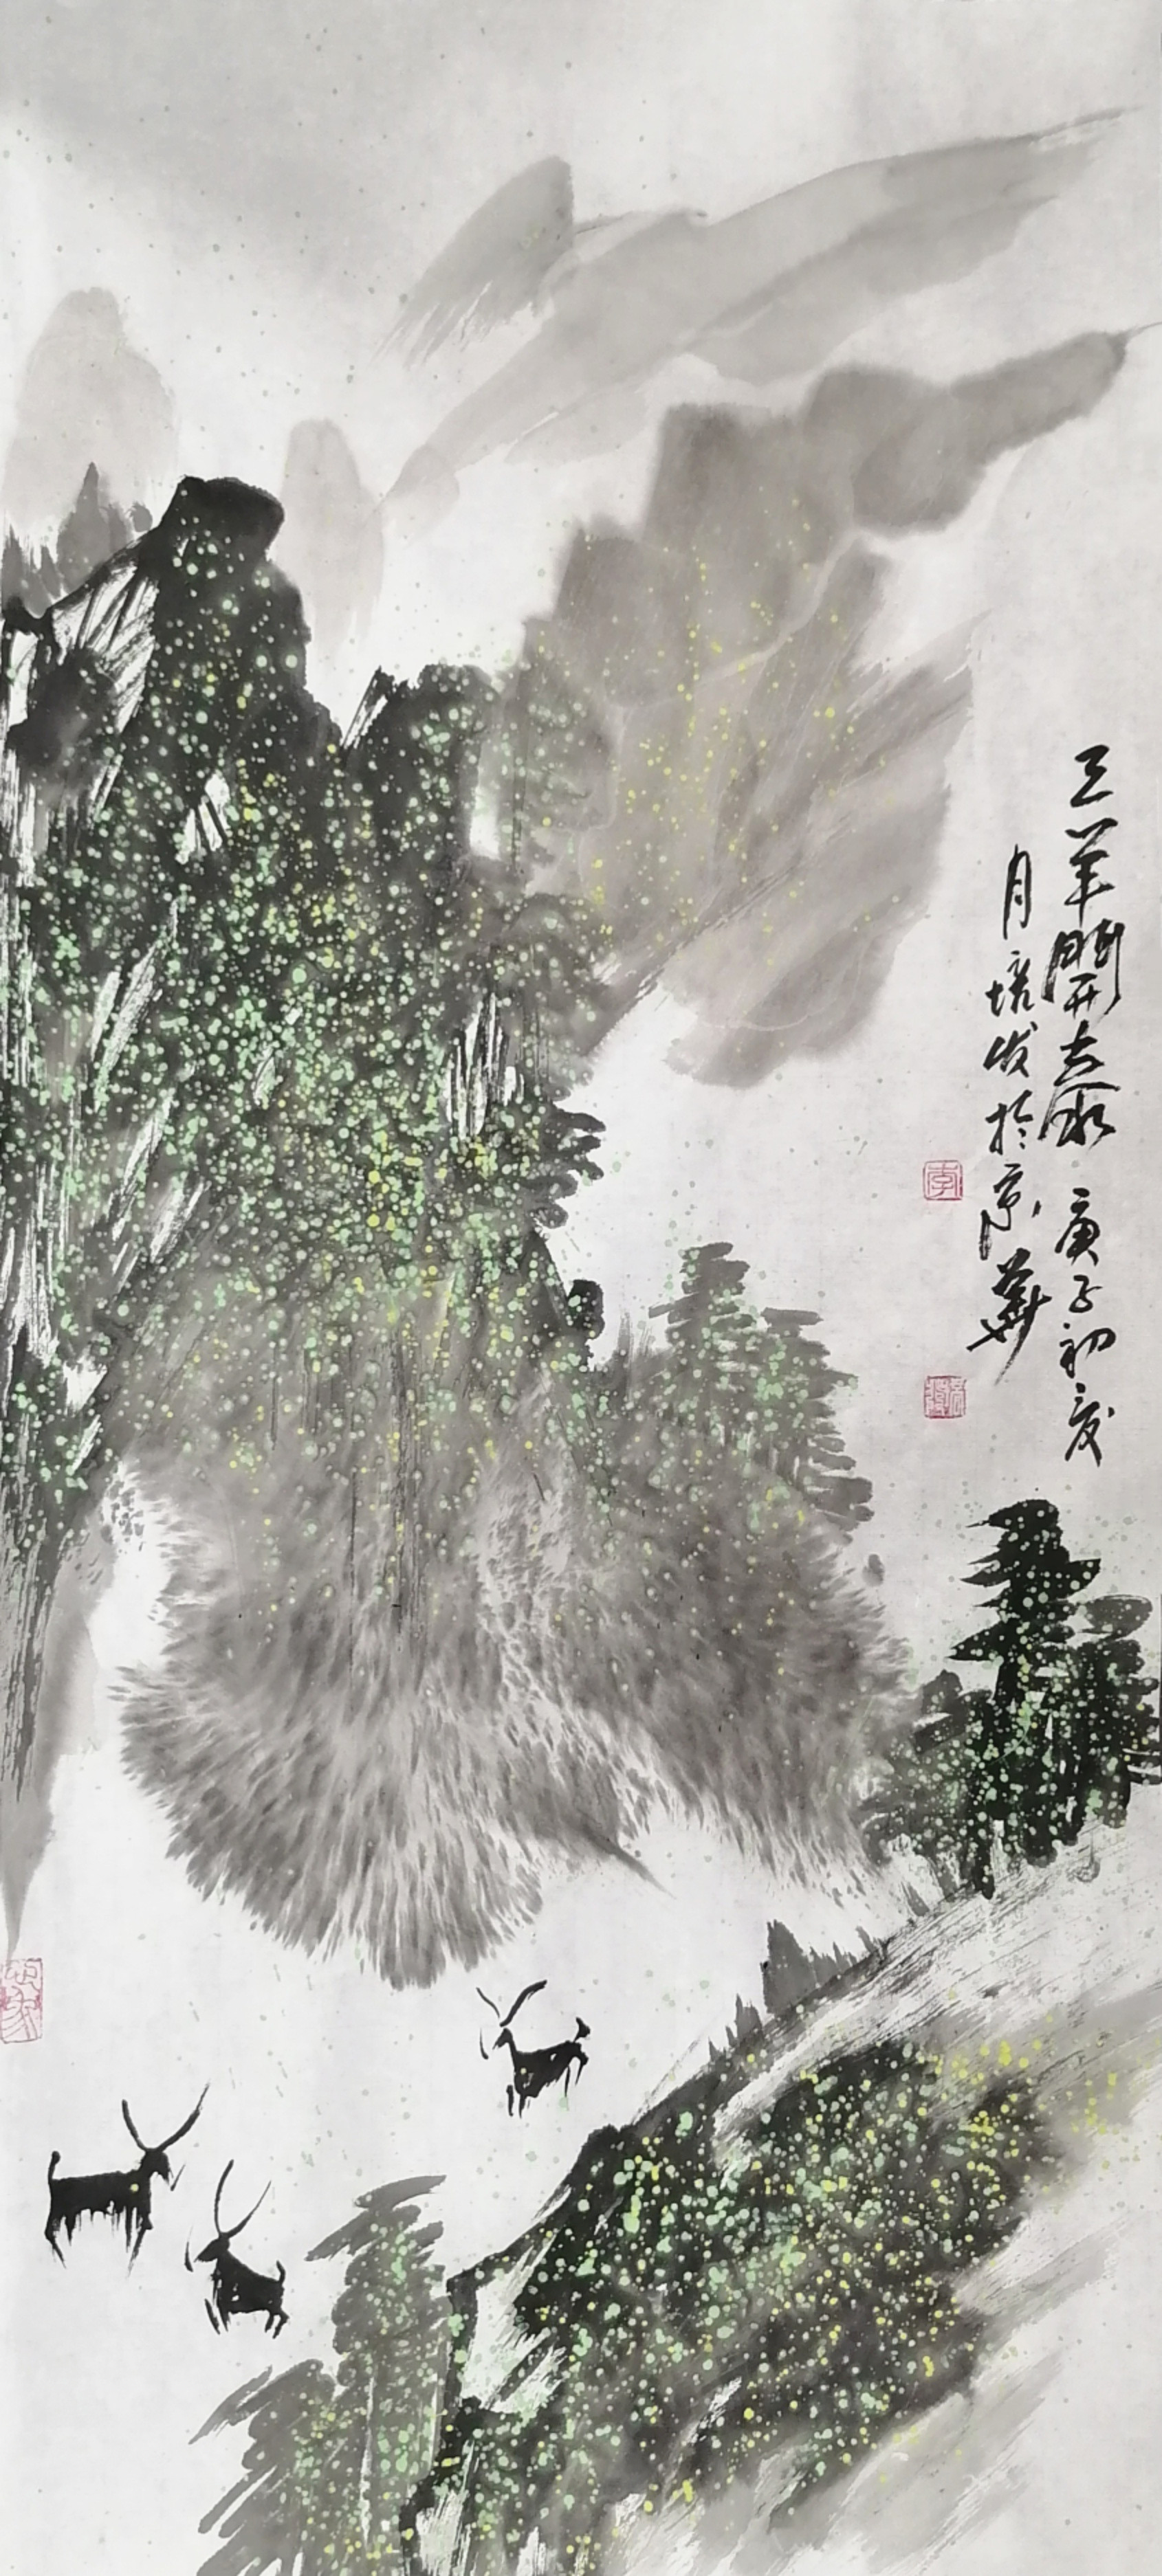 三羊開泰 庚子初夏
月培发於京華
李